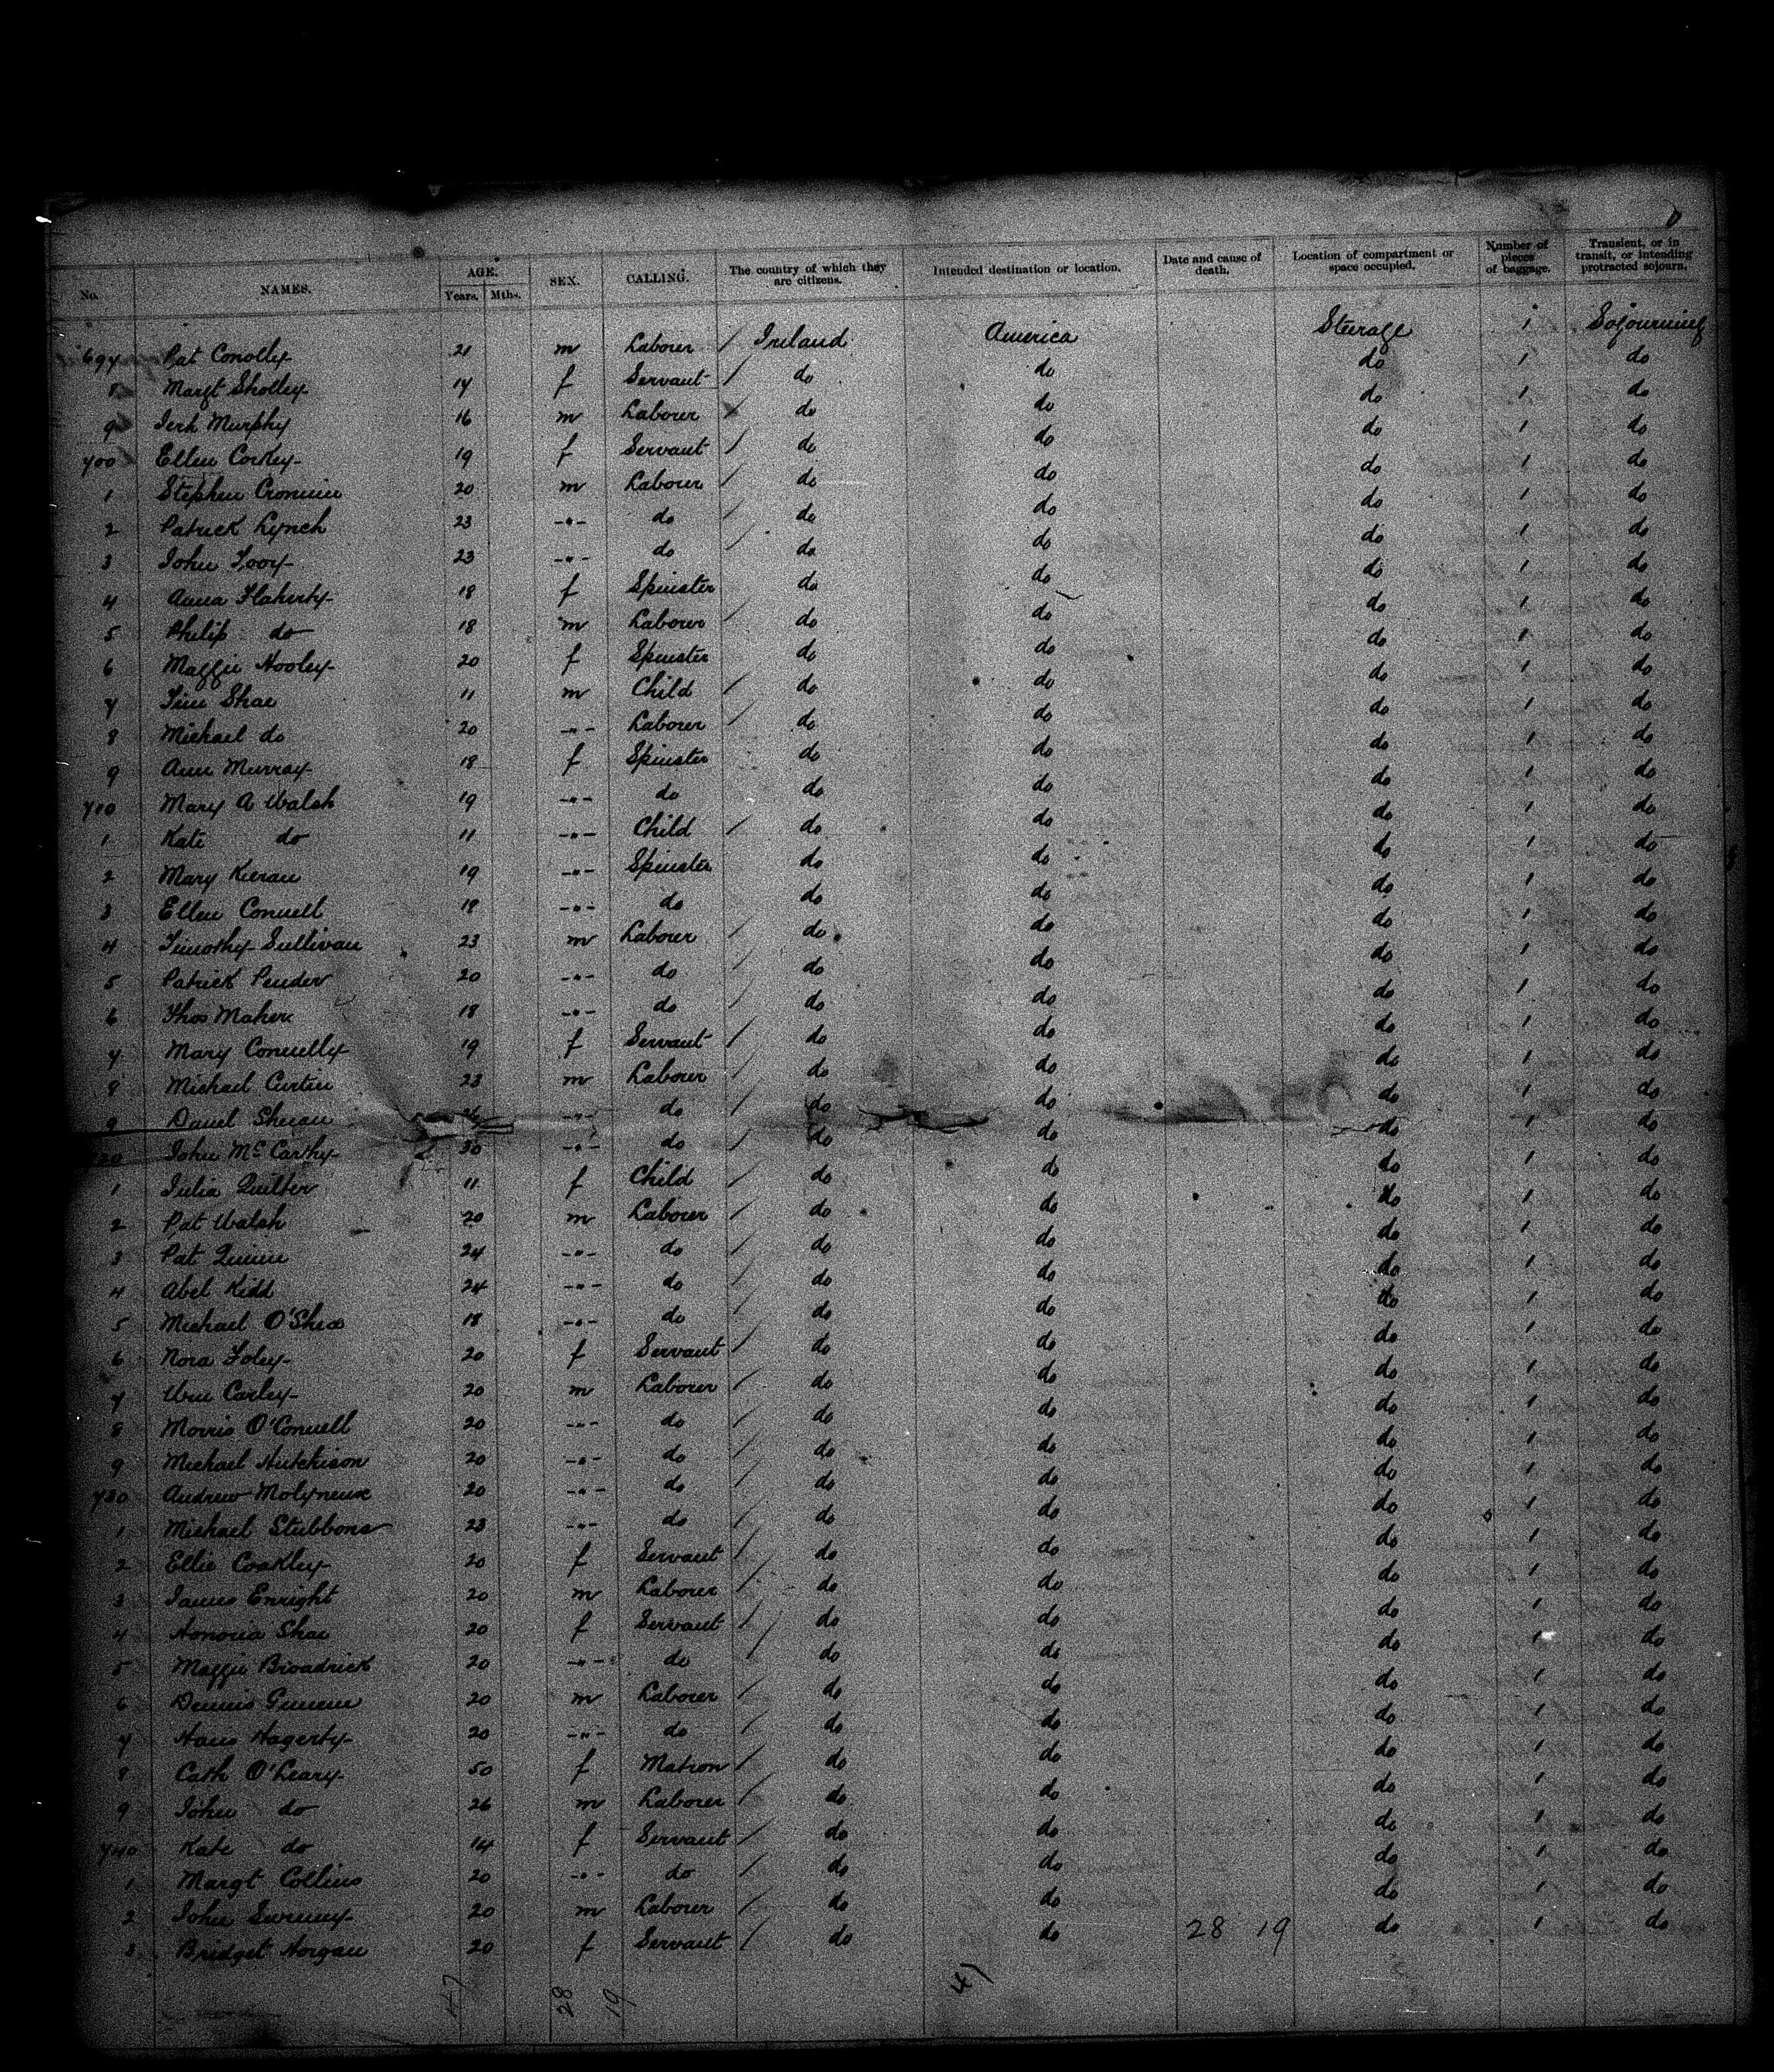 No. NAMES. AGE. Years. Mths. SEX. CALLING. The country of which they are citizens. Intended destination or location. Date and cause of death. Location of compartment or space occupied. Number of pieces of baggage. Transient, or in transit, or intending protracted sojourn.
697 Pat Conolly 21 m Laborer / Ireland America Steerage 1 Sojourning
8 Margt Sholley 17 f Servant / do do do 1 do
9 Jerh Murphy 16 m Laborer / do do do 1 do
700 Ellen Corkey 19 f Servant / do do do 1 do
1 Stephen Cronin 20 m Laborer / do do do 1 do
2 Patrick Lynch 23 -"- do / do do do 1 do
3 John 23 -"- do / do do do 1 do
4 Anna Flaherty 18 f Spinster do do do 1 do
5 Philip do 18 m Laborer / do do do 1 do
6 Maggie Hooley 20 f Spinster do do do 1 do
7 Tim Shae 11 m Child / do do do 1 do
8 Michael do 20 -"- Laborer / do do do 1 do
9 Ann Murray 18 f Spinster do do do 1 do
710 Mary A Walsh 19 -"- do do do do 1 do
1 Kate do 11 -"- Child / do do do 1 do
2 Mary Kieran 19 -"- Spinster do do do 1 do
3 Ellen Connell 18 -"- do do do do 1 do
4 Timothy Sullivan 23 m Laborer / do do do 1 do
5 Patrick Pender 20 -"- do / do do do 1 do
6 Thos Maher 18 -"- do / do do do 1 do
7 Mary Connelly 19 f Servant / do do do 1 do
8 Michael Curtin 23 m Laborer / do do do 1 do
9 Daniel Sheean -"- do / do do do 1 do
720 John McCarthy 30 -"- do / do do do 1 do
1 Julia Quilter 11 f Child / do do do 1 do
2 Pat Walsh 20 m Laborer / do do do 1 do
3 Pat Quinn 24 -"- do / do do do 1 do
4 Abel Kidd 24 -"- do / do do do 1 do
5 Michael O'Shea 18 -"- do / do do do 1 do
6 Nora Foley 20 f Servant / do do do 1 do
7 Wm Carley 20 m Laborer / do do do 1 do
8 Morris O'Connell 20 -"- do / do do do 1 do
9 Michael Hutchison 20 -"- do / do do do 1 do
730 Andrew Molyneux 20 -"- do / do do do 1 do
1 Michael Stubbons 23 -"- do / do do do 1 do
2 Ellie Coakley 20 f Servant / do do do 1 do
3 James Enright 20 m Laborer / do do do 1 do
4 Honoria Shae 20 f Servant / do do do 1 do
5 Maggie Broadrick 20 -"- do / do do do 1 do
6 Dennis 20 m Laborer / do do do 1 do
7 Hans Hagerty 20 -"- do / do do do 1 do
8 Cath O'Leary 50 f Matron / do do do 1 do
9 John do 26 m Laborer / do do do 1 do
740 Kate do 14 f Servant / do do do 1 do
1 Margt Collins 20 -"- do / do do do 1 do
2 John Sweeny 20 m Laborer / do do do 1 do
3 Bridget Horgan 20 f Servant / do do 28 19 do 1 do
47 28 19 47